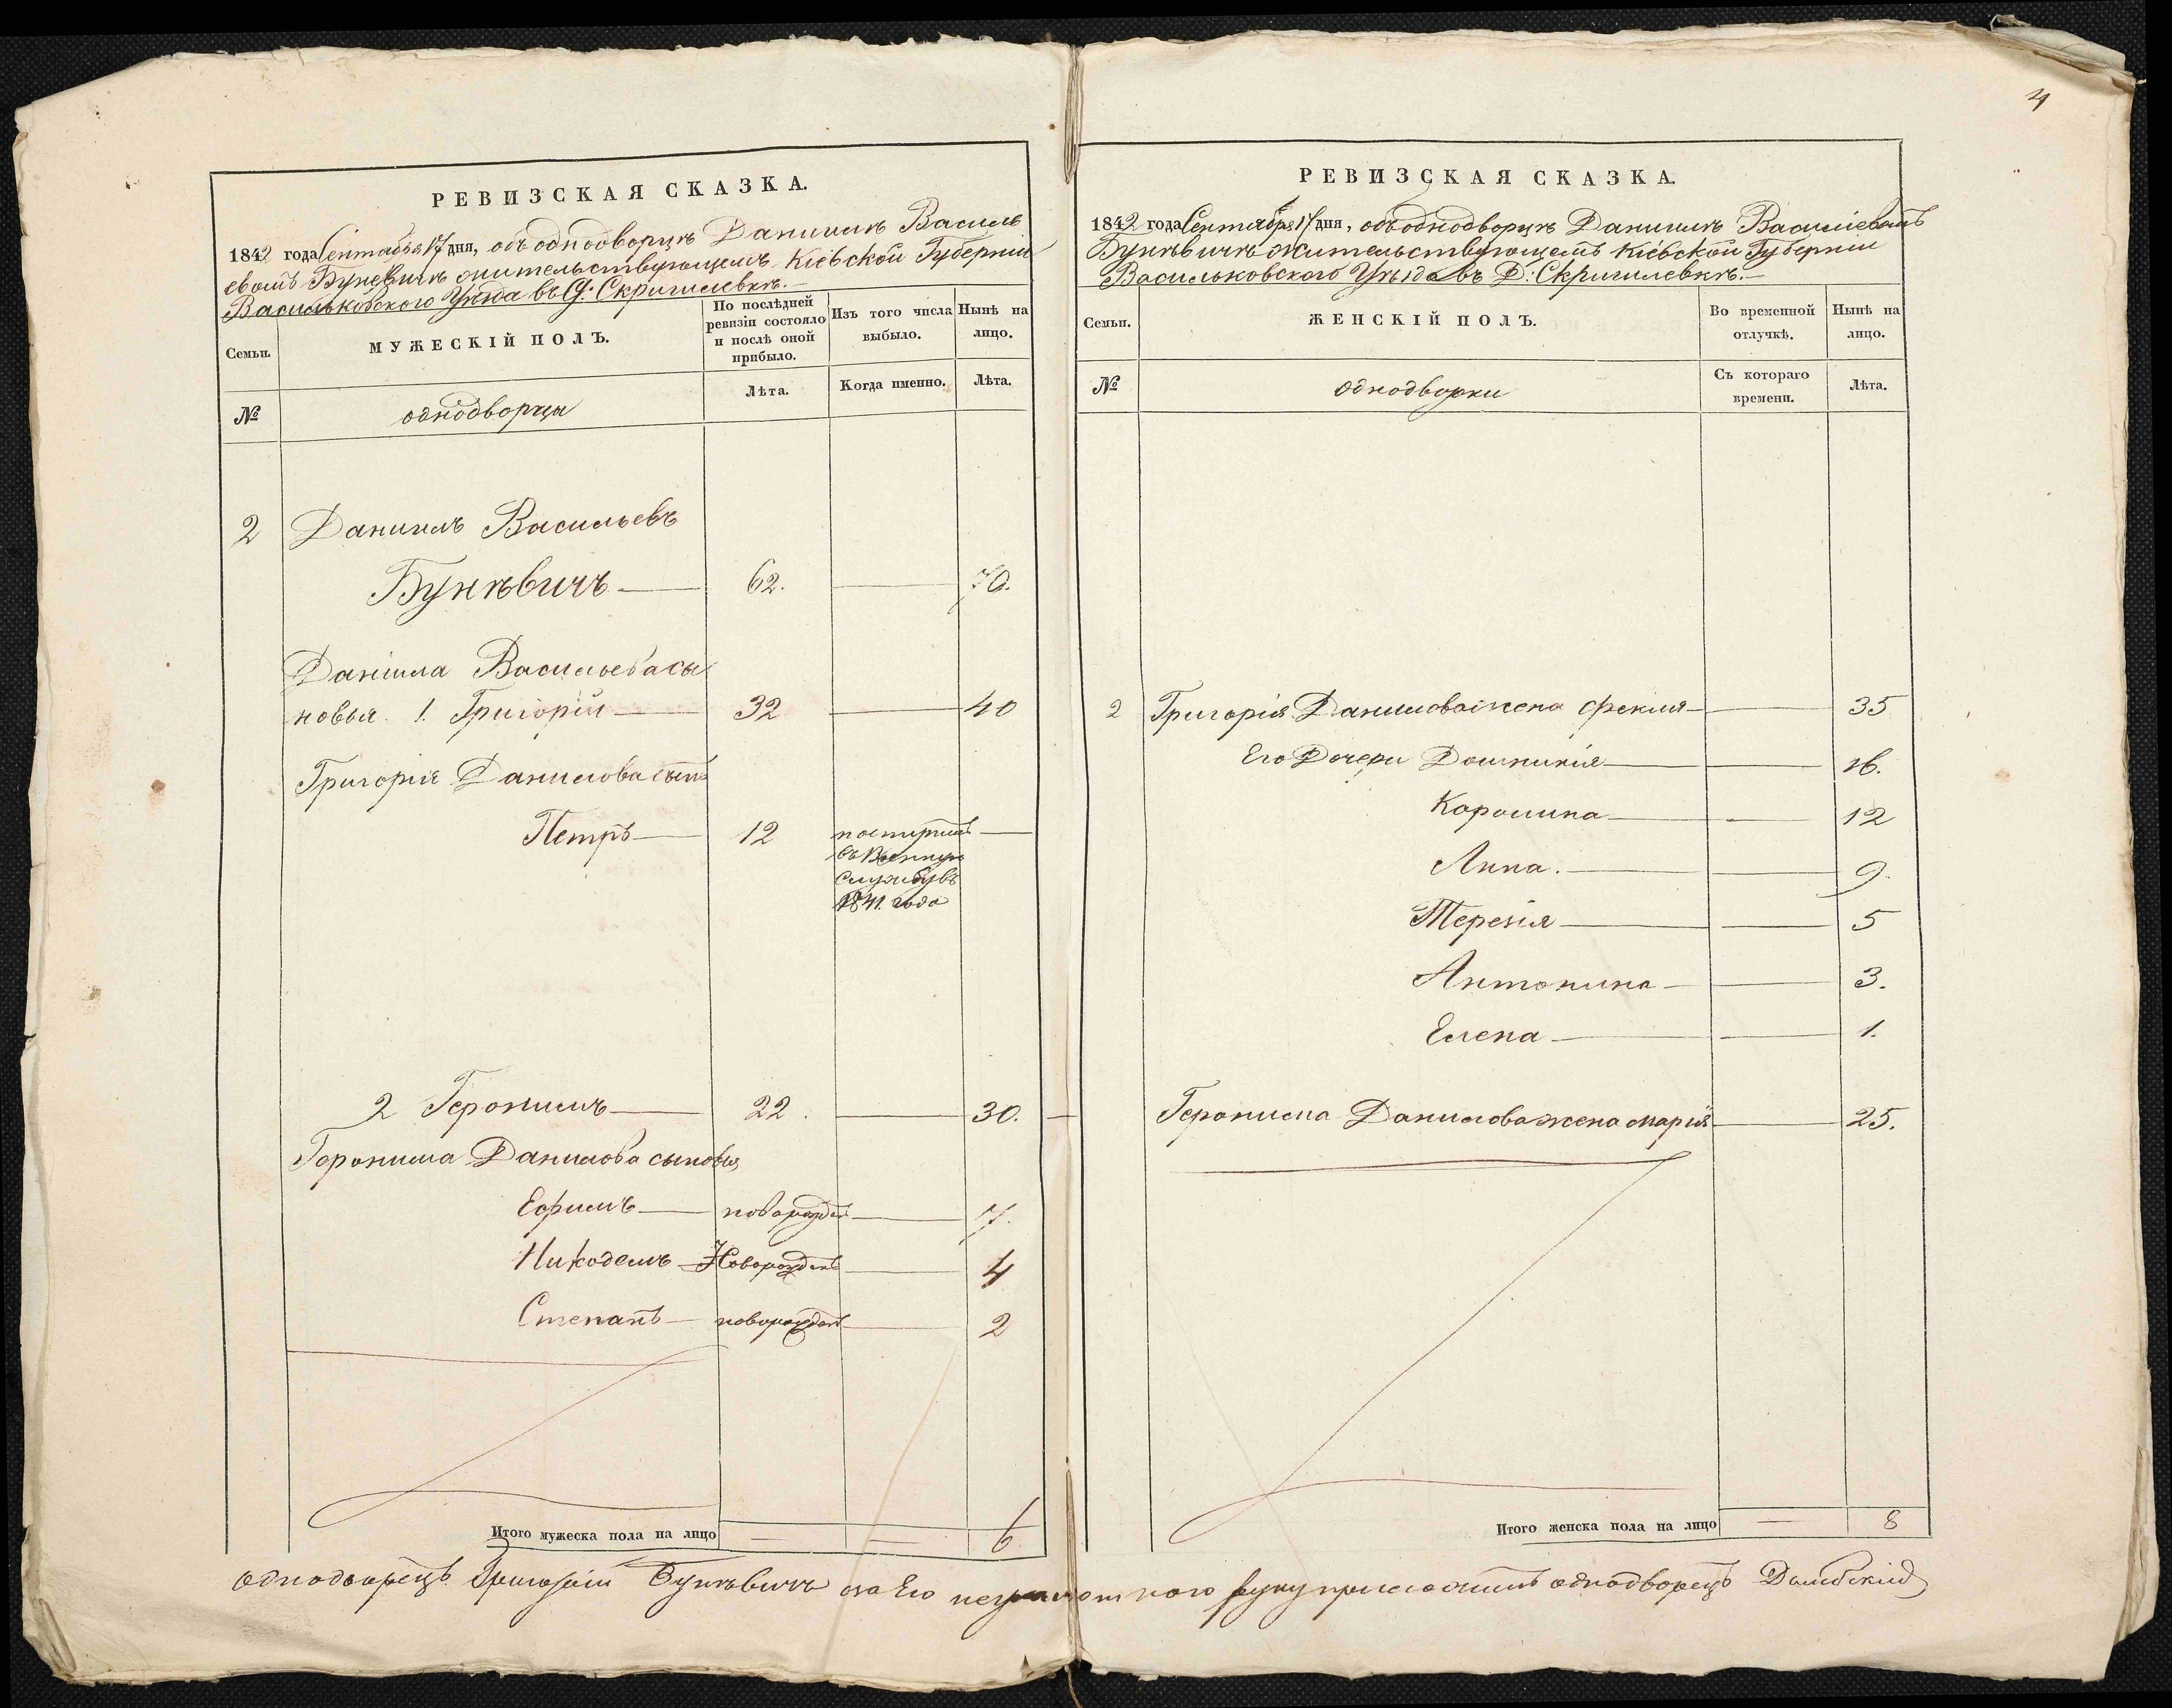 4
РЕВИЗСКАЯ СКАЗКА.
1842 года Сентября 17 дня, объ однодворцѣ Даниилѣ Василь
евомъ Буневичѣ жительствующемъ Кіевской Губерніи
Васильковского Уѣзда въ Д: Скригилевкѣ.
Семьи.
МУЖЕСКІЙ ПОЛЪ.
По послѣдней
ревизіи состояло
и послѣ оной
прибыло.
Изъ того числа
выбыло.
Нынѣ на
лицо.
№
однодворцы
Лѣта.
Когда именно.
Лѣта.
2 Даниилъ Васильевъ
Бунѣвичъ 62. 70.
Даніила Васильева сы
новья. 1. Григорій 32 40
Григорія Данилова сынъ
Петръ 12 поступилъ
въ Военную
службу въ
1841. года
2 Геронимъ 22. 30.
Геронима Данилова сыновья
Ефимъ новорожден 7.
Никодемъ Новорожденъ 4
Степанъ новорожденъ 2
Итого мужеска пола на лицо 6
РЕВИЗСКАЯ СКАЗКА.
1842 года Сентября 17 дня, объ однодворцѣ Даниилѣ Василіевомъ
Бунѣвичѣ жительствующемъ Кіевской Губерніи
Васильковского Уѣзда въ Д: Скригилевкѣ.
Семьи.
ЖЕНСКІЙ ПОЛЪ.
Во временной
отлучкѣ.
Нынѣ на
лицо.
№
однодворки
Съ котораго
времени.
Лѣта.
2 Григорія Данилова жена Фекля 35
Его Дочери Домникія 16.
Каролина 12
Анна. 9.
Терезія 5
Антонина 3.
Елена 1.
Геронима Данилова жена Марія 25.
Итого женска пола на лицо 8
однодворецъ Григорій Бунѣвичъ а за Его неграмотного руку приложилъ однодворецъ Домбскій